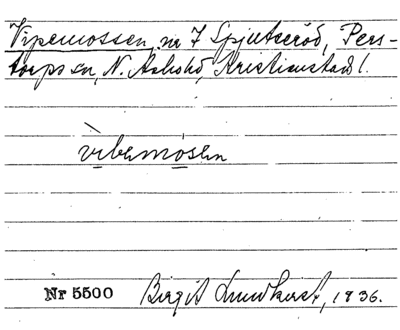 Vipemossen, nr 7 Spjutseröd, Pers-
torps sn, N. Åsbo hd, Kristianstad l.
vibemosen
Nr 5500 Birgit Lundkvist, 1936.